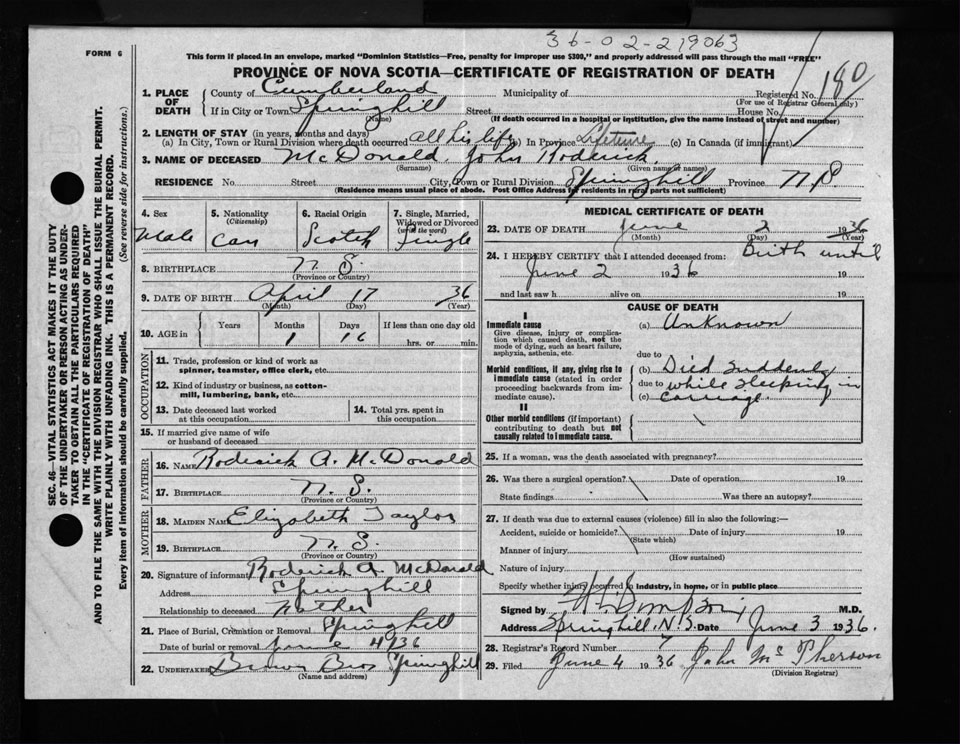 36-02-219063
FORM 6
This form if placed in an envelope, marked "Dominion Statistics—Free, penalty for improper use $300," and properly addressed will pass through the mail "FREE"
PROVINCE OF NOVA SCOTIA—CERTIFICATE OF REGISTRATION OF DEATH
180
1. PLACE OF DEATH
County of Cumberland Municipality of Registered No.
(For use of Registrar General only)
If in City or Town Springhill Street House No.
(Name) (If death occurred in a hospital or institution, give the name instead of street and number)
2. LENGTH OF STAY (in years, months and days)
(a) In City, Town or Rural Division where death occurred all his life (b) In Province Lifetime (c) In Canada (if immigrant)
3. NAME OF DECEASED McDonald, John Roderick.
(Surname) (Given name or names)
RESIDENCE No. Street City, Town or Rural Division Springhill Province N.S.
(Residence means usual place of abode. Post Office Address for residents in rural parts not sufficient)
4. Sex Male
5. Nationality (Citizenship) Can
6. Racial Origin Scotch
7. Single, Married, Widowed or Divorced (write the word) Single
8. BIRTHPLACE N. S.
(Province or Country)
9. DATE OF BIRTH April 17 36
(Month) (Day) (Year)
10. AGE in Years Months Days If less than one day old
1 16 hrs. or min.
OCCUPATION
11. Trade, profession or kind of work as spinner, teamster, office clerk, etc.
12. Kind of industry or business, as cotton-mill, lumbering, bank, etc.
13. Date deceased last worked at this occupation
14. Total yrs. spent in this occupation
15. If married give name of wife or husband of deceased
FATHER
16. NAME Roderick A. McDonald
17. BIRTHPLACE N. S.
(Province or Country)
MOTHER
18. MAIDEN NAME Elizabeth Taylor
19. BIRTHPLACE N. S.
(Province or Country)
20. Signature of informant Roderick A. McDonald
Address Springhill
Relationship to deceased Father
21. Place of Burial, Cremation or Removal Springhill
Date of burial or removal June 4/36
22. UNDERTAKER Brown Bros Springhill
(Name and address)
MEDICAL CERTIFICATE OF DEATH
23. DATE OF DEATH June 2 1936
(Month) (Day) (Year)
24. I HEREBY CERTIFY that I attended deceased from: Birth until
June 2 1936 19
and last saw h alive on 19
CAUSE OF DEATH
I
Immediate cause
Give disease, injury or complication which caused death, not the mode of dying, such as heart failure, asphyxia, asthenia, etc.
(a) Unknown
due to
Morbid conditions, if any, giving rise to immediate cause (stated in order proceeding backwards from immediate cause).
(b) Died suddenly
due to while sleeping in
(c) carriage.
II
Other morbid conditions (if important) contributing to death but not causally related to immediate cause.
25. If a woman, was the death associated with pregnancy?
26. Was there a surgical operation? Date of operation 19
State findings Was there an autopsy?
27. If death was due to external causes (violence) fill in also the following:—
Accident, suicide or homicide? Date of injury 19
(State which)
Manner of injury
(How sustained)
Nature of injury
Specify whether injury occurred in industry, in home, or in public place
Signed by M.D.
Address Springhill, N.S. Date June 3 1936.
28. Registrar's Record Number 7
29. Filed June 4 1936 John McPherson
(Division Registrar)
SEC. 46—VITAL STATISTICS ACT MAKES IT THE DUTY
OF THE UNDERTAKER OR PERSON ACTING AS UNDER-
TAKER TO OBTAIN ALL THE PARTICULARS REQUIRED
IN THE "CERTIFICATE OF REGISTRATION OF DEATH"
AND TO FILE THE SAME WITH THE DIVISION REGISTRAR WHO SHALL ISSUE THE BURIAL PERMIT.
WRITE PLAINLY WITH UNFADING INK. THIS IS A PERMANENT RECORD.
Every item of information should be carefully supplied. (See reverse side for instructions.)